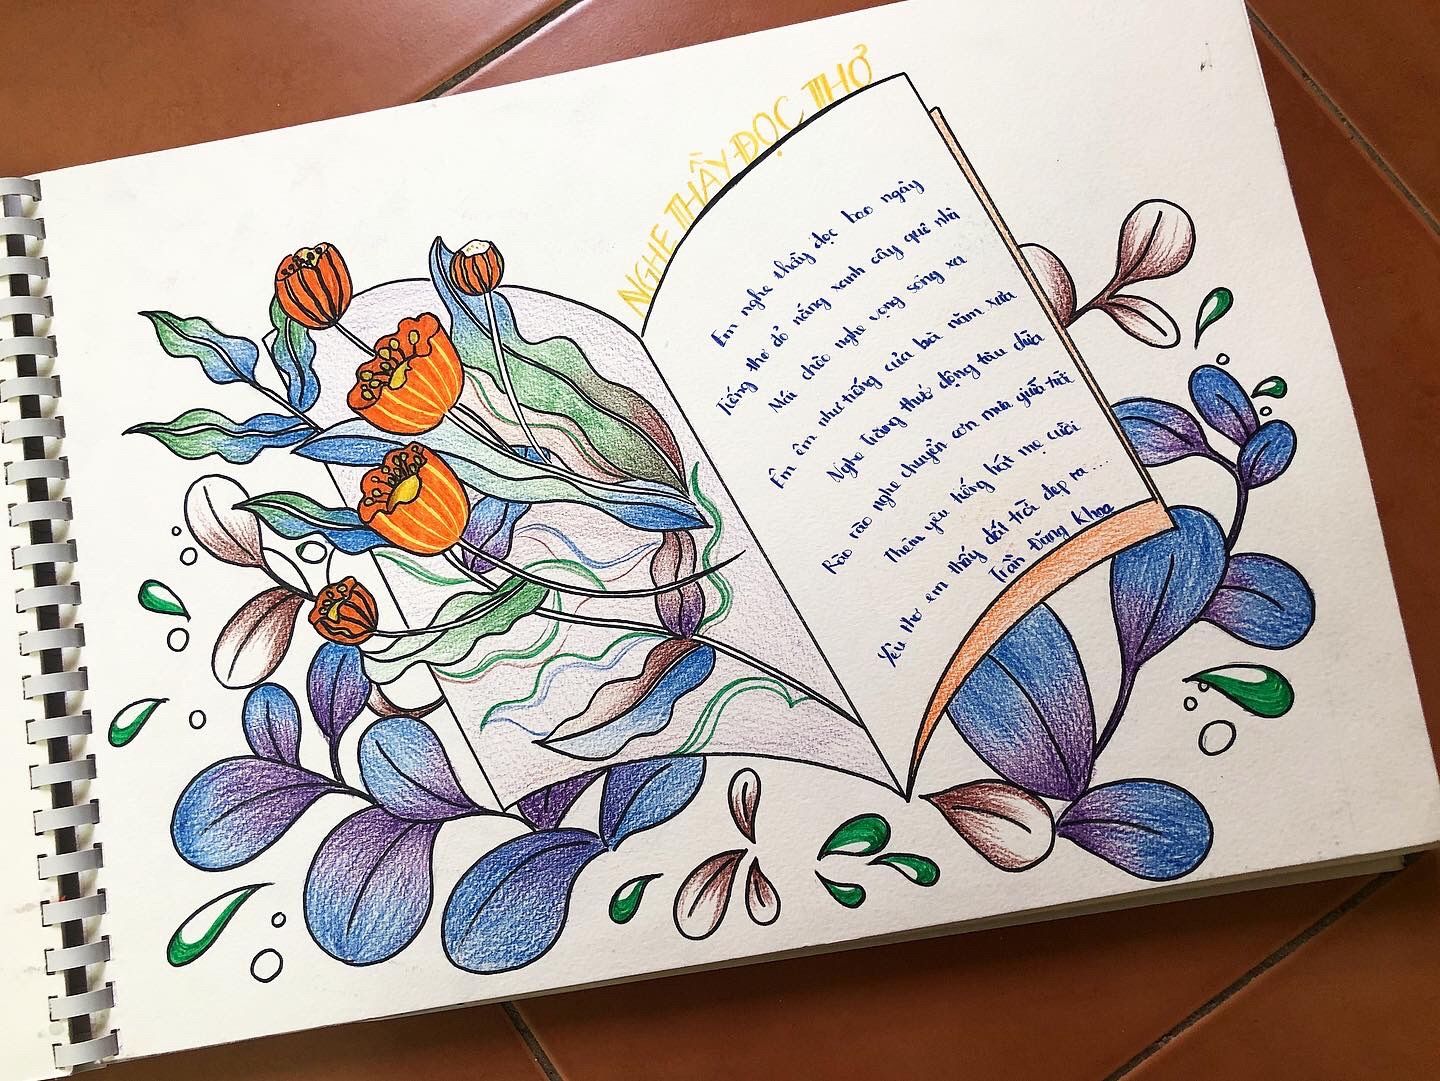 NGHE THẦY ĐỌC THƠ
Em nghe thầy đọc bao ngày
Tiếng thơ đỏ nắng xanh cây quê nhà
Mái chèo nghe vọng sông xa
Êm êm như tiếng của bà năm xưa
Nghe trăng thuở động tàu dừa
Rào rào nghe chuyển cơn mưa giữa trời
Thêm yêu tiếng hát mẹ cười
Yêu thơ em thấy đất trời đẹp ra....
Trần Đăng Khoa